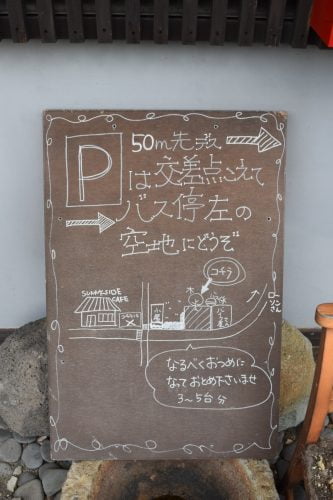 P
50m先デス
は交差点こえて
バス停左の
空地にどうぞ
コチラ
SUNNYSIDE
CAFE
木
なるべくおつめに
なっておとめ下さいませ
3〜5台分